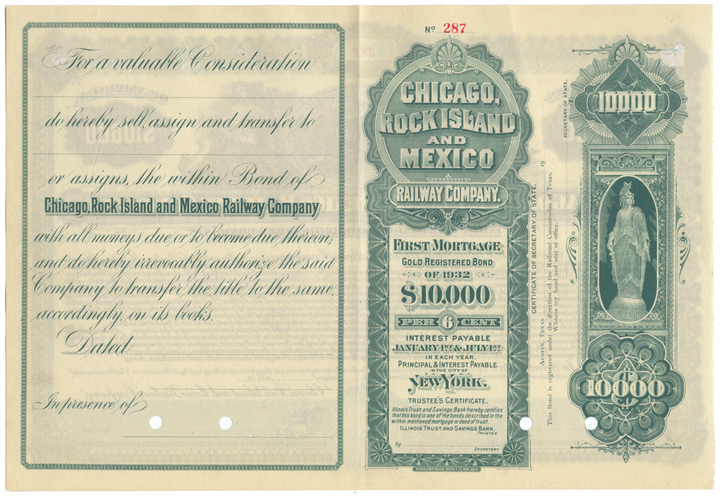 For a valuable Consideration
do hereby sell, assign and transfer to
or assigns, the within Bond of
Chicago, Rock Island and Mexico Railway Company
with all moneys due or to become due thereon;
and do hereby irrevocably authorize the said
Company to transfer the title to the same,
accordingly, on its books.
Dated
In presence of
No 287
CHICAGO,
ROCK ISLAND
AND
MEXICO
RAILWAY COMPANY.
FIRST MORTGAGE
GOLD REGISTERED BOND
OF 1932
$10,000
PER 6 CENT
INTEREST PAYABLE
JANUARY 1ST & JULY 1ST
IN EACH YEAR.
PRINCIPAL & INTEREST PAYABLE
IN THE CITY OF
NEW YORK.
TRUSTEE'S CERTIFICATE.
Illinois Trust and Savings Bank hereby certifies
that this bond is one of the bonds described in the
within mentioned mortgage or deed of trust.
ILLINOIS TRUST AND SAVINGS BANK,
TRUSTEE
by
SECRETARY
CERTIFICATE OF SECRETARY OF STATE.
AUSTIN, TEXAS 19
This Bond is registered under the direction of the Railroad Commission of Texas.
Witness my hand and seal of office.
SECRETARY OF STATE.
10000
$
10000